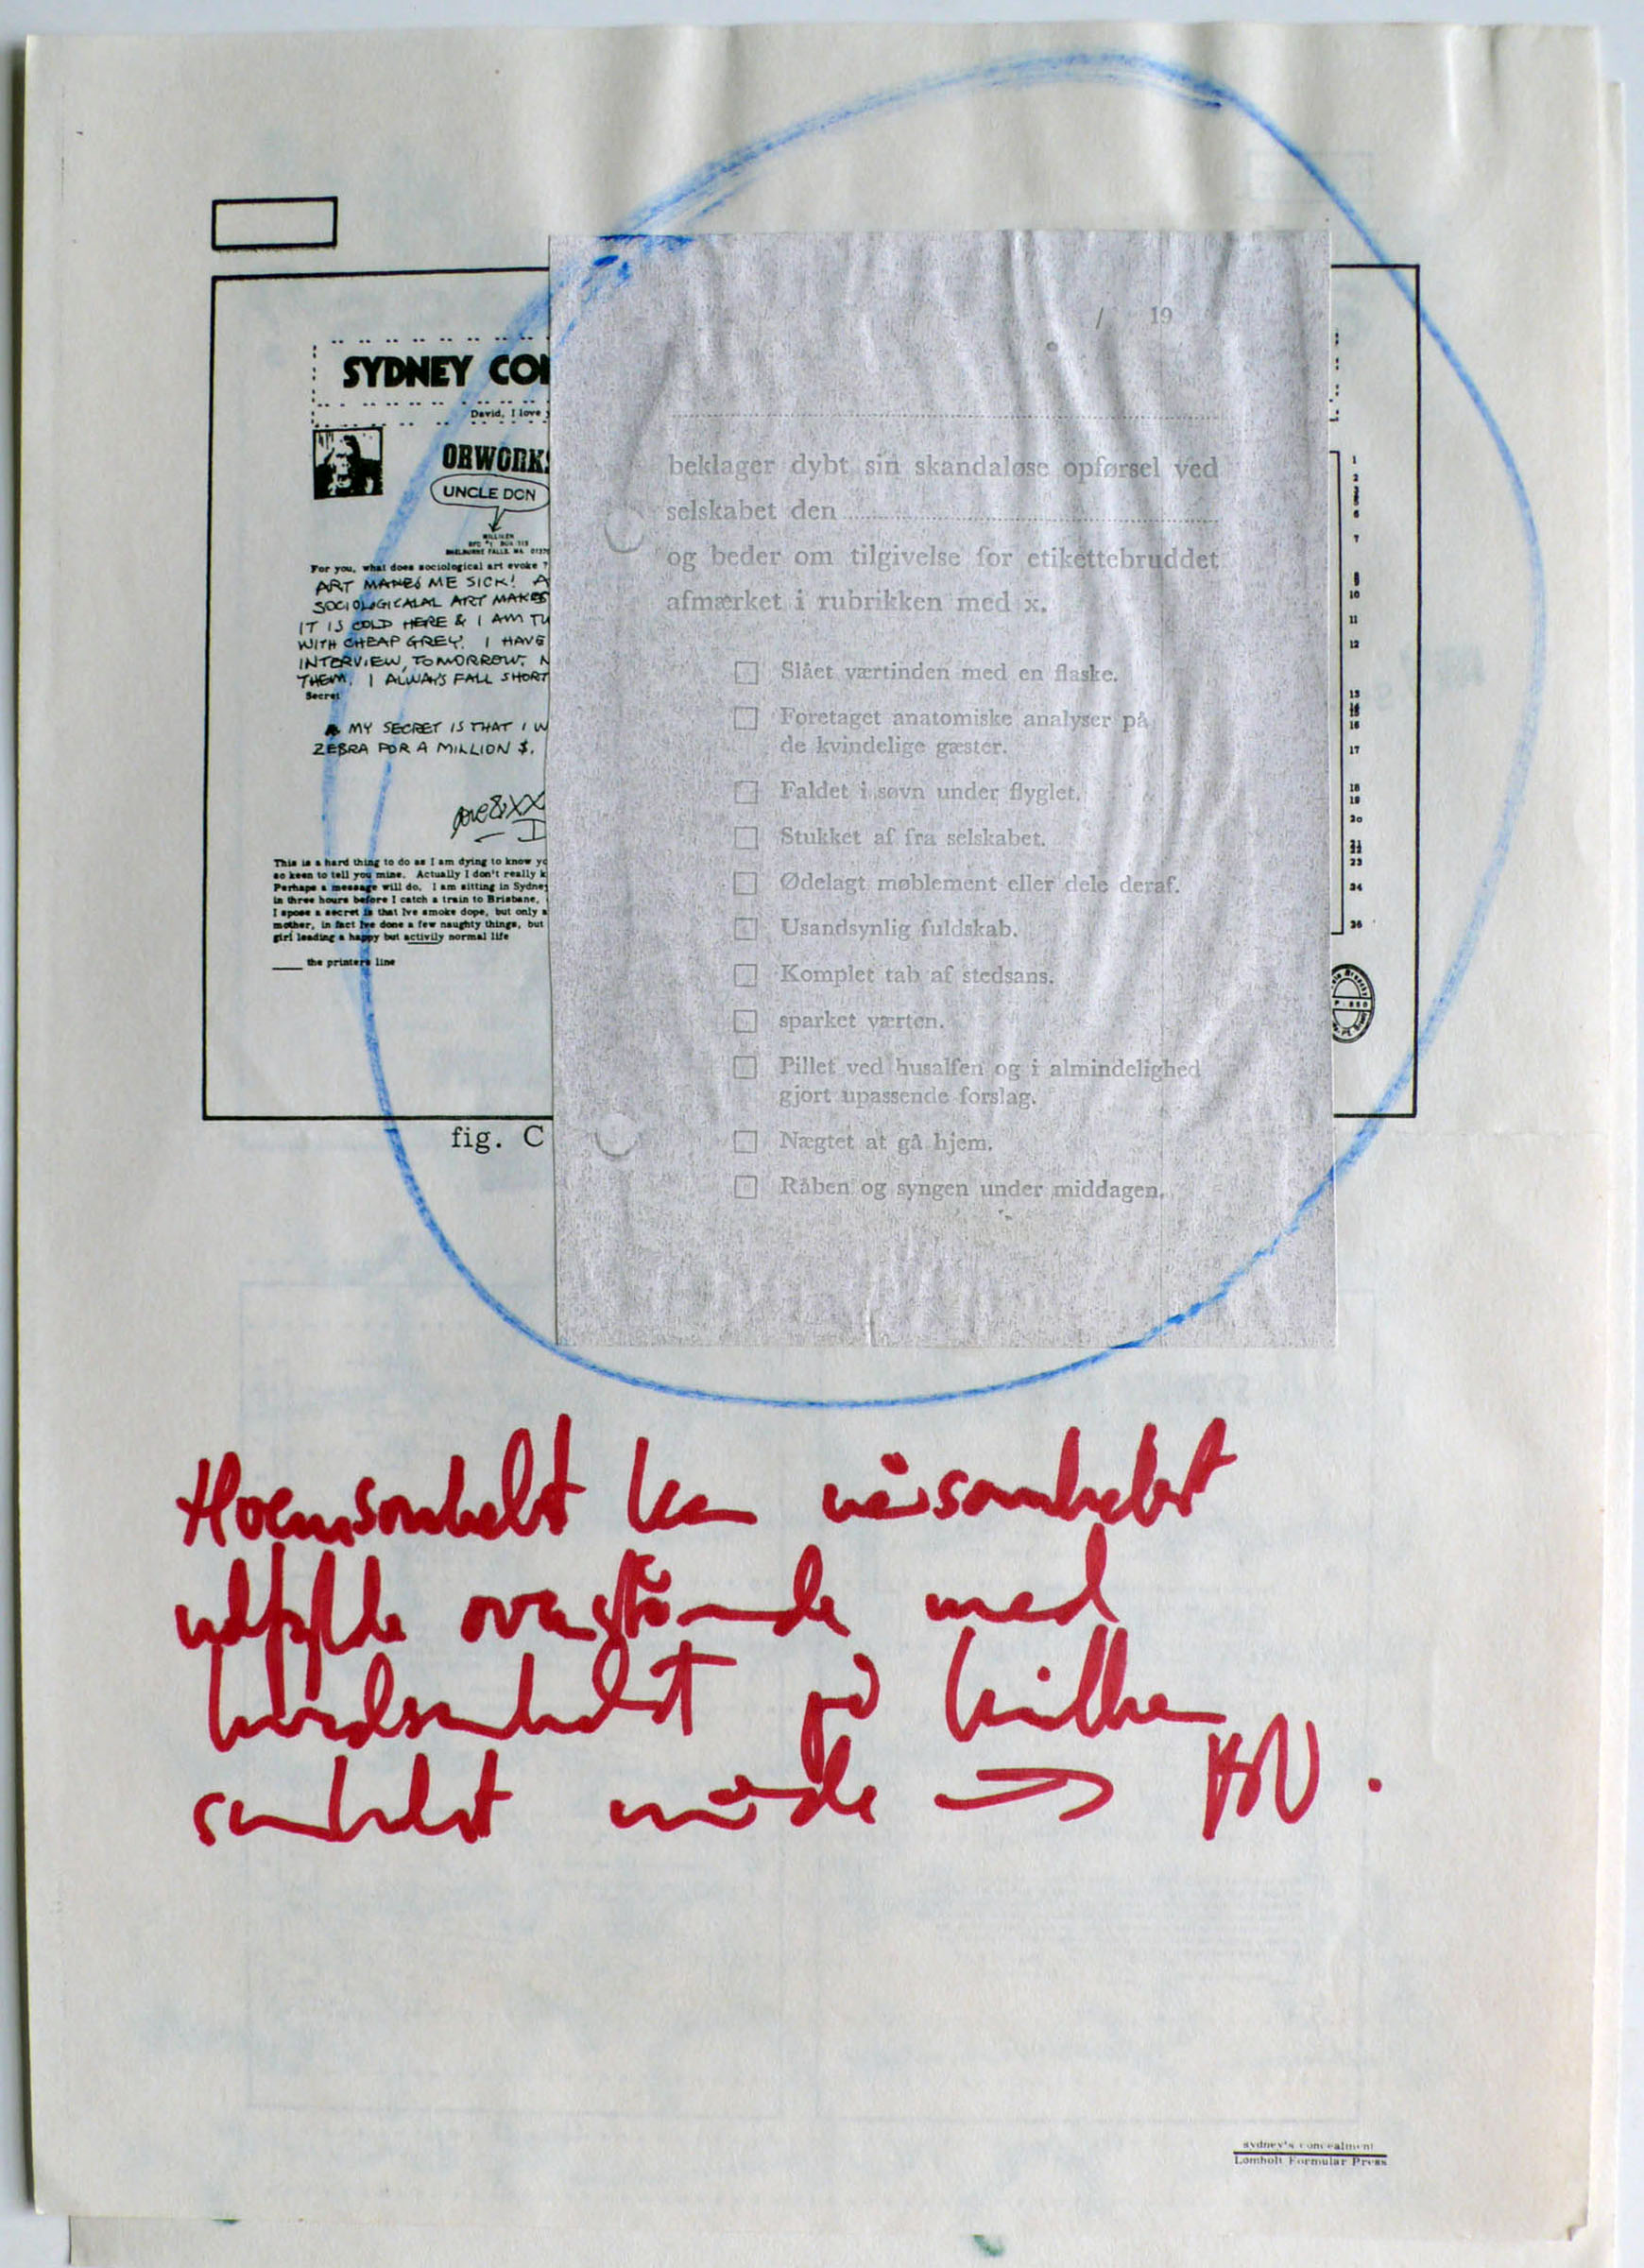 SYDNEY CO
David, I love
ORWORK
UNCLE DON
MILLIKEN
SHELBURNE FALLS, MA 0137
For you, what does sociological art evoke ?
ART MAKES ME SICK! A
SOCIOLOGICALAL ART MAKES
IT IS COLD HERE & I AM TU
WITH CHEAP GREY. I HAVE
INTERVIEW, TOMORROW. N
THEM. I ALWAYS FALL SHORT
Secret
MY SECRET IS THAT I W
ZEBRA FOR A MILLION $.
This is a hard thing to do as I am dying to know yo
so keen to tell you mine. Actually I don't really k
Perhaps a message will do. I am sitting in Sydney
in three hours before I catch a train to Brisbane,
I spose a secret is that Ive smoke dope, but only a
mother, in fact Ive done a few naughty things, but
girl leading a happy but activily normal life
the printers line
fig. C
/ 19
beklager dybt sin skandaløse opførsel ved
selskabet den
og beder om tilgivelse for etikettebruddet
afmærket i rubrikken med x.
Slået værtinden med en flaske.
Foretaget anatomiske analyser på
de kvindelige gæster.
Faldet i søvn under flyglet.
Stukket af fra selskabet.
Ødelagt møblement eller dele deraf.
Usandsynlig fuldskab.
Komplet tab af stedsans.
sparket værten.
Pillet ved husalfen og i almindelighed
gjort upassende forslag.
Nægtet at gå hjem.
Råben og syngen under middagen.
1
2
6
7
10
11
12
13
16
17
18
19
20
22
23
24
26
Hvemsomhelst kan nårsomhelst
udfylde ovenstående med
hvadsomhelst på hvilken
somhelst måde →
sydney's concealment
Lomholt Formular Press